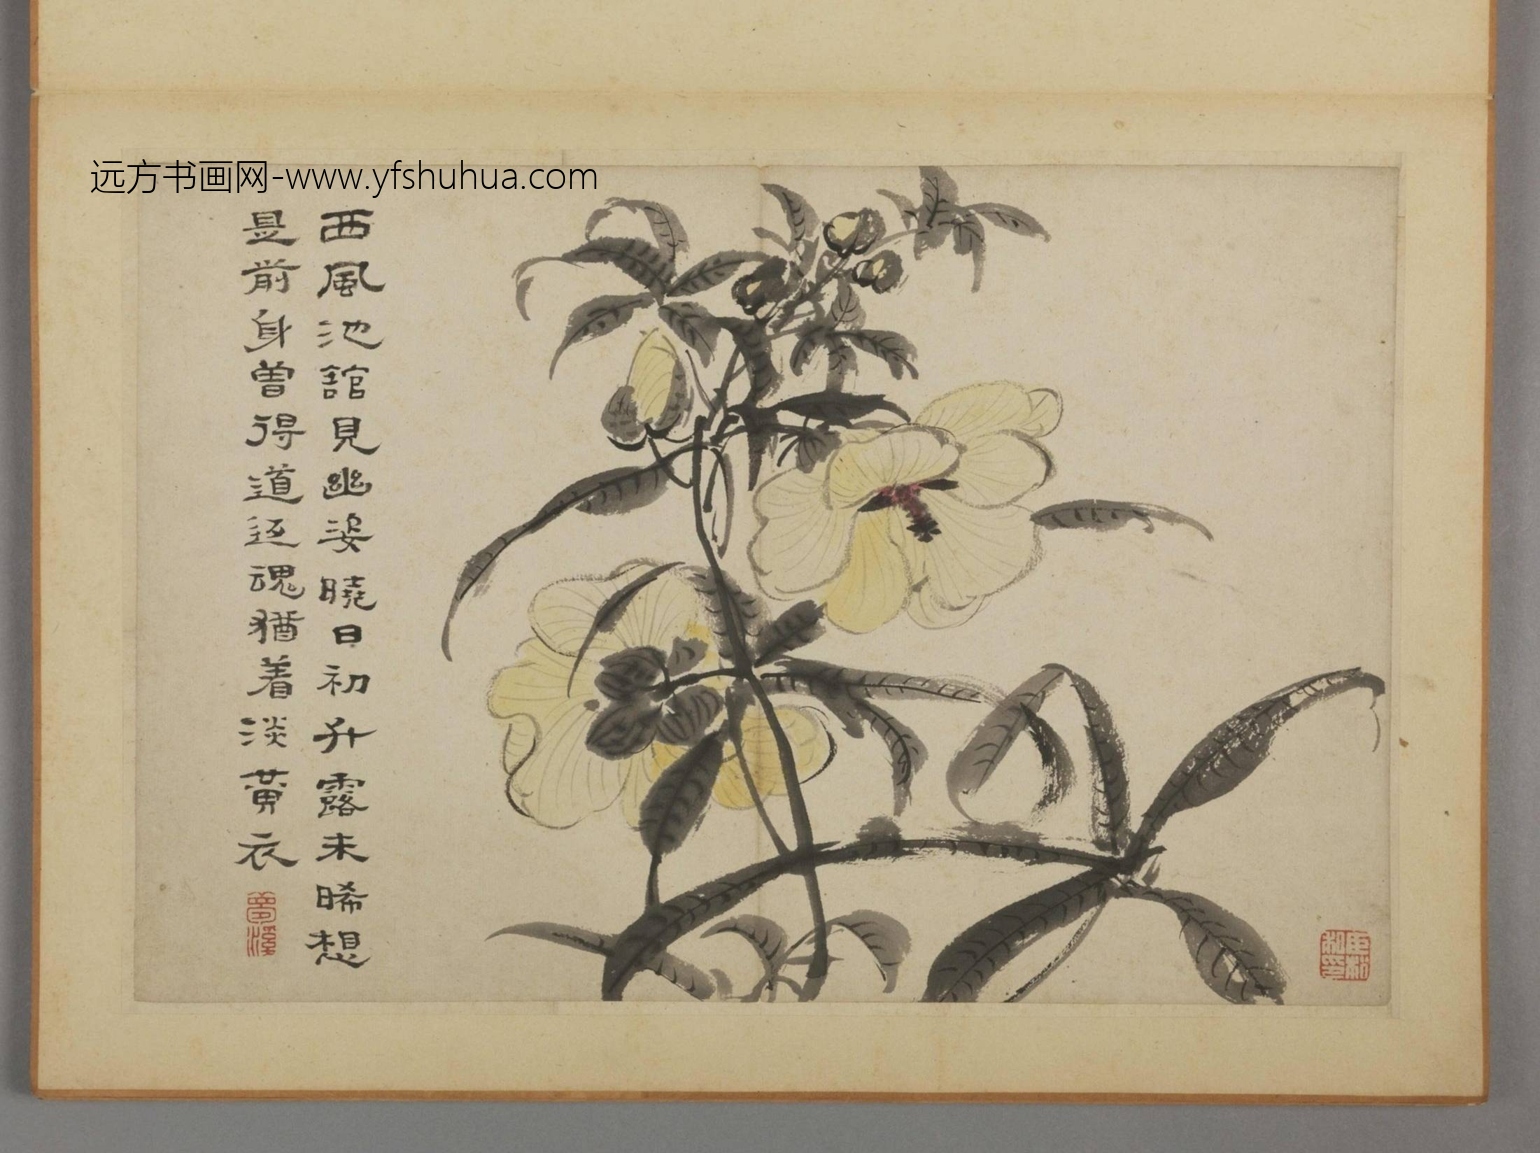 远方书画网-www.yfshuhua.com
西風池館見幽姿曉日初升露未晞想
是前身曾得道返魂猶着淡黃衣